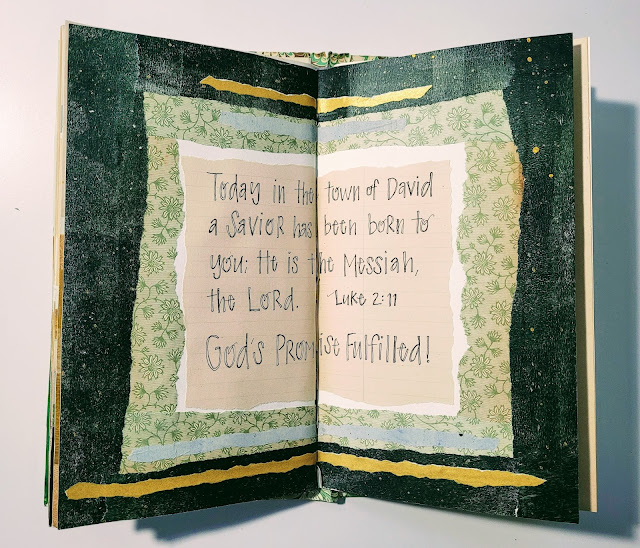 Today in the town of David
a Savior has been born to
you; He is the Messiah,
the Lord. Luke 2:11
God's Promise Fulfilled!